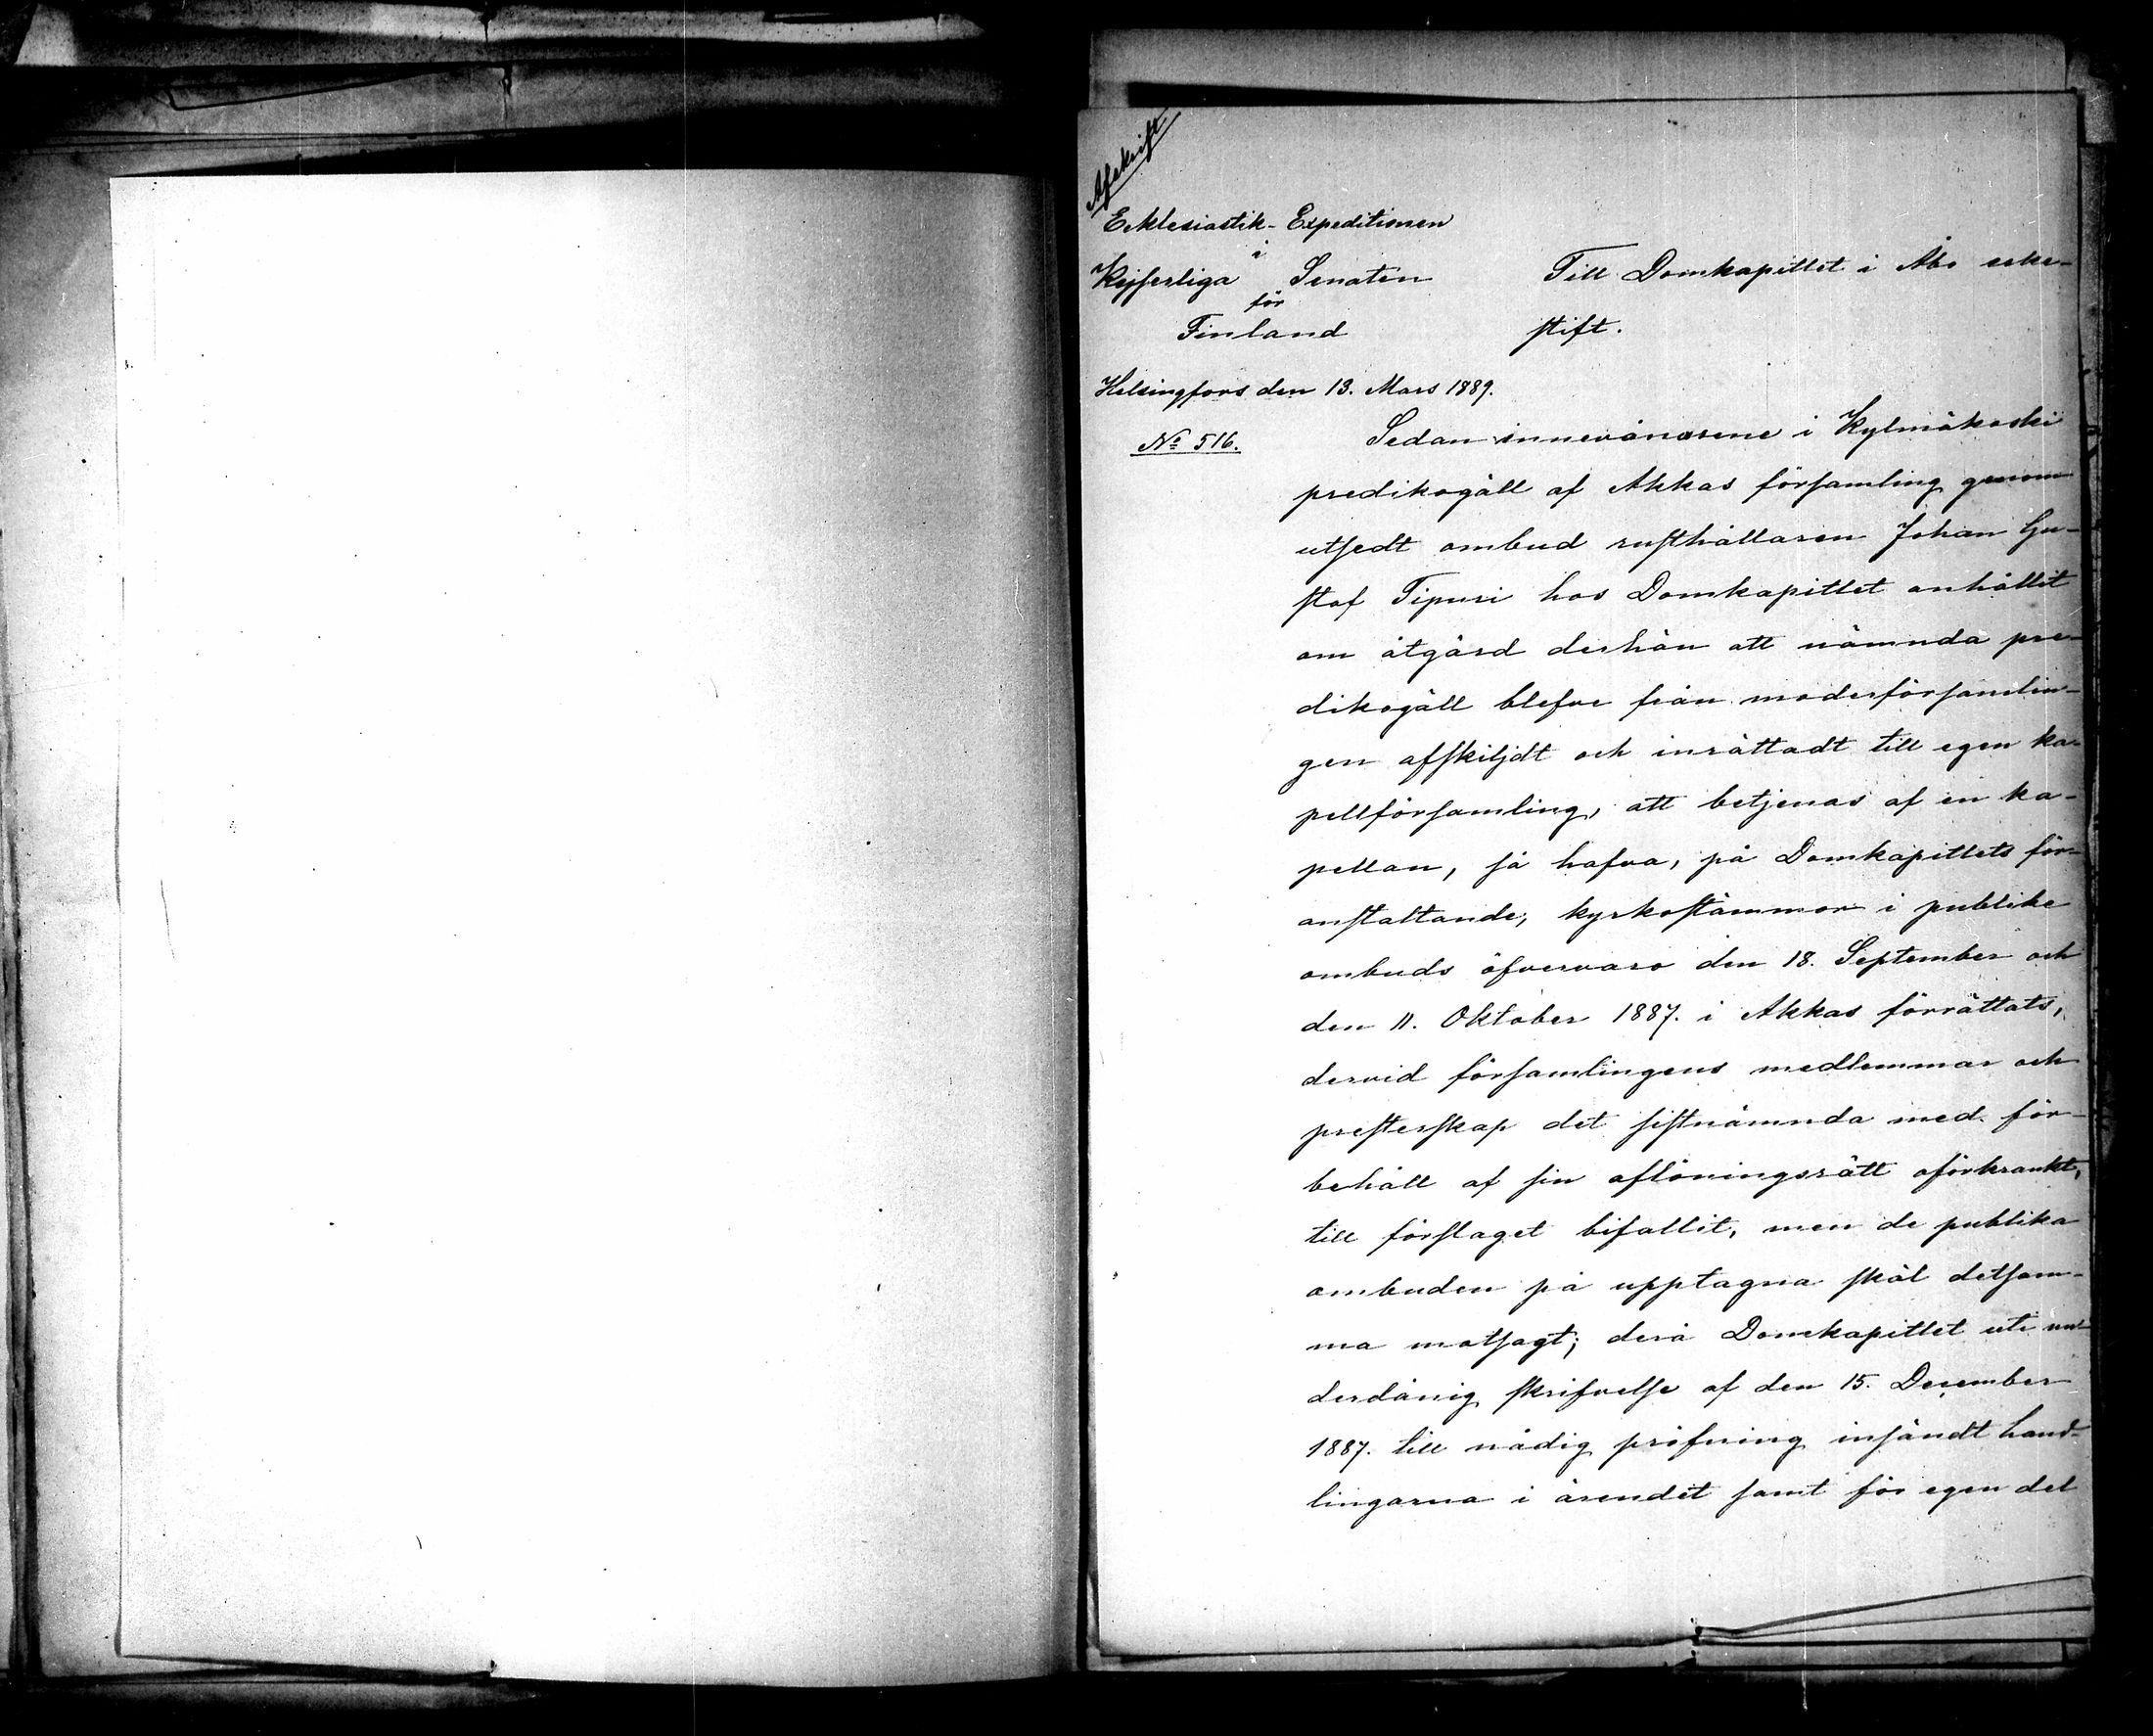 Afskrift
Ecklesiastik-Expeditionen
i
Kejserliga Senaten
för
Finland
Helsingfors den 13. Mars 1889.
No 516.
Till Domkapitlet i Åbo erke-
stift.
Sedan innevånarene i Kylmäkoski
predikogäll af Akkas församling genom
utsedt ombud rusthållaren Johan Gu-
staf Tipuri hos Domkapitlet anhållit
om åtgärd derhän att nämnda pre-
dikogäll blefve från moderförsamlin-
gen afskiljdt och inrättadt till egen ka-
pellförsamling, att betjenas af en ka-
pellan, så hafva, på Domkapitlets för-
anstaltande, kyrkostämmor i publike
ombuds öfvervaro den 18. September och
den 11. Oktober 1887. i Akkas förrättats,
dervid församlingens medlemmar och
presterskap det sistnämnda med för-
behåll af sin aflöningsrätt oförkränkt,
till förslaget bifallit, men de publika
ombuden på upptagna skäl detsam-
ma motsagt; derå Domkapitlet uti un-
derdånig skrifvelse af den 15. December
1887. till nådig pröfning insändt hand-
lingarna i ärendet samt för egen del